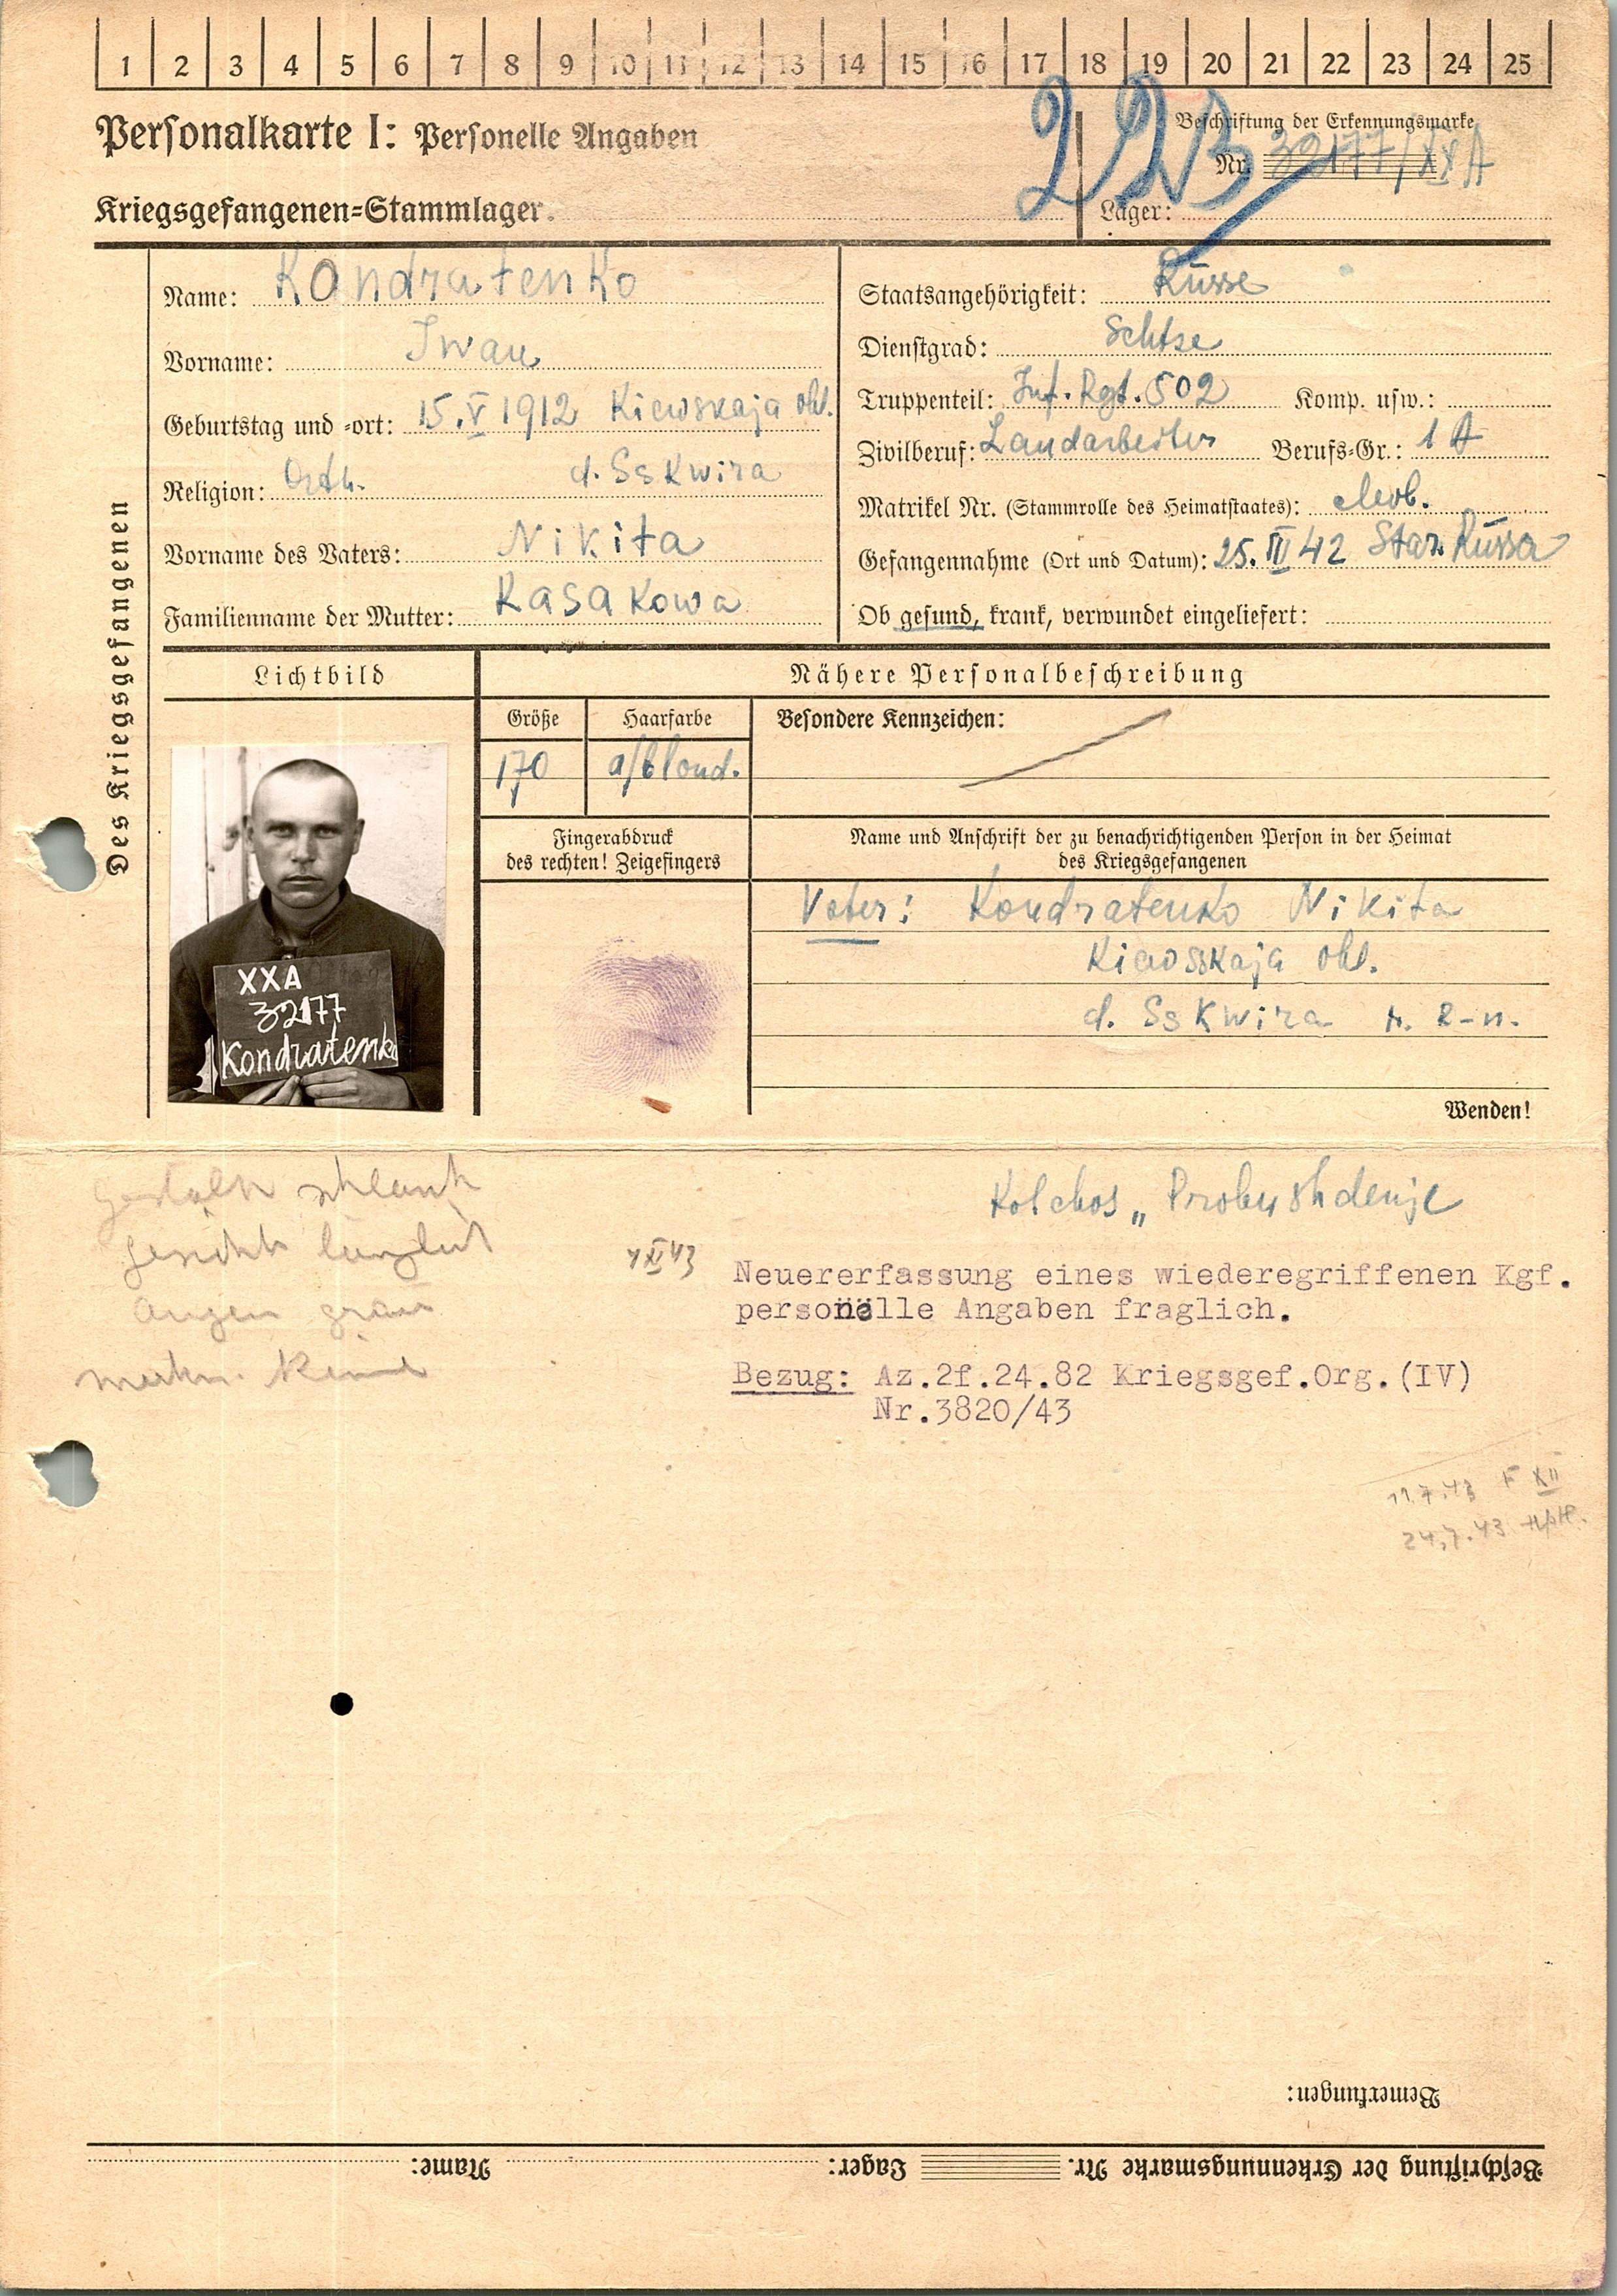 1 2 3 4 5 6 7 8 9 10 11 12 13 14 15 16 17 18 19 20 21 22 23 24 25
Personalkarte I: Personelle Angaben
Beschriftung der Erkennungsmarke
Nr. 32177/XXA
Kriegsgefangenen=Stammlager.
Lager:
Des Kriegsgefangenen
Name: Kondratenko
Vorname: Iwan
Geburtstag und =ort: 15.V 1912 Kiewskaja obl.
Religion: Orth. d. Sskwira
Vorname des Vaters: Nikita
Familienname der Mutter: Kasakowa
Staatsangehörigkeit: Russe
Dienstgrad: Schtse
Truppenteil: Inf. Rgt. 502 Komp. usw.:
Zivilberuf: Landarbeiter Berufs=Gr.: 1 A
Matrikel Nr. (Stammrolle des Heimatstaates): Mob.
Gefangennahme (Ort und Datum): 25.III 42 Star. Russa
Ob gesund, krank, verwundet eingeliefert:
Lichtbild
Nähere Personalbeschreibung
Größe Haarfarbe Besondere Kennzeichen:
170 d/blond.
Fingerabdruck
des rechten! Zeigefingers
Name und Anschrift der zu benachrichtigenden Person in der Heimat
des Kriegsgefangenen
Vater: Kondratenko Nikita
Kiewsskaja obl.
d. Sskwira
XXA
32177
Kondratenko
Wenden!
Kolchos „Probushdenje
Gestalt schlank
Gesicht länglich
Augen grau
Neuererfassung eines wiederegriffenen Kgf.
personëlle Angaben fraglich.
Bezug: Az.2f.24.82 Kriegsgef.Org.(IV)
Nr.3820/43
11.7.43 F XII
24.7.43
Bemerkungen:
Beschriftung der Erkennungsmarke Nr. Lager: Name: